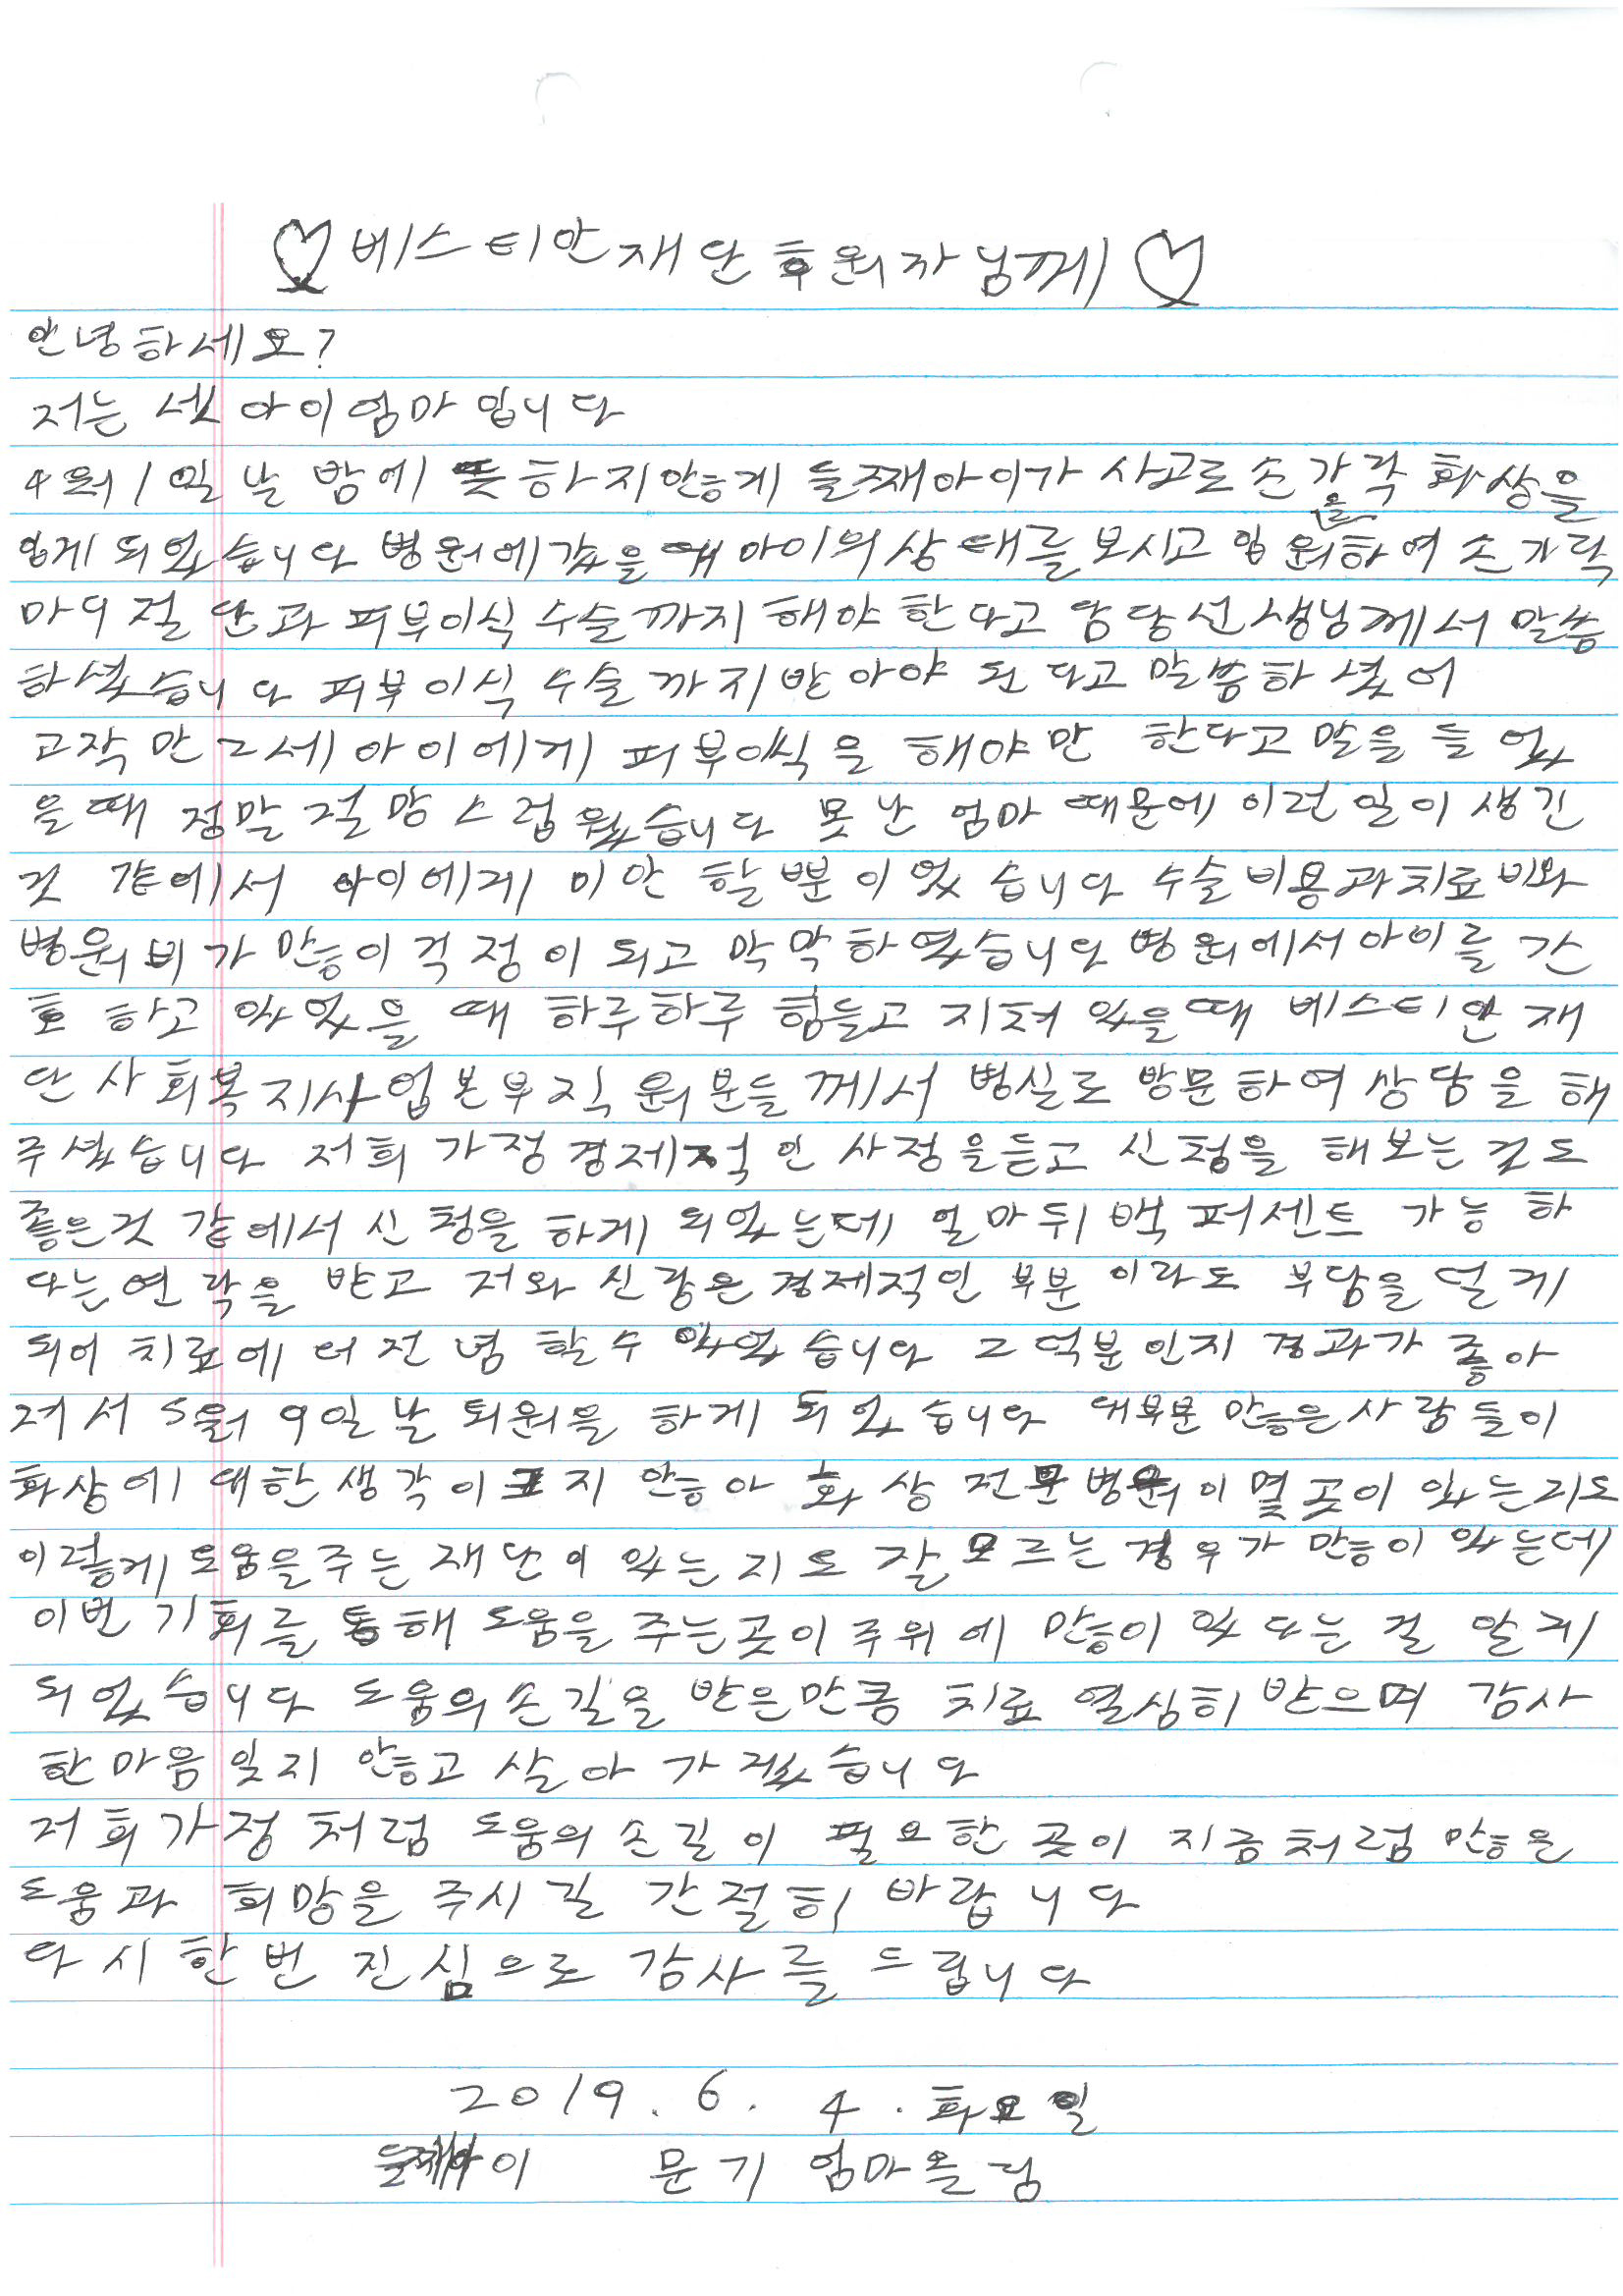 ♡베스티안재단후원자님께♡
안녕하세요?
저는 셋 아이엄마입니다
4월 1일날 밤에 뜻하지안흥게 둘째아이가 사고로 손가락 화상을
을
입게 되었습니다 병원에갔을때 아이의 상태를 보시고 입원하여 손가락
마디 절단과 피부이식 수술까지 해야 한다고 담당선생님께서 말씀
하셨습니다 피부이식 수술까지받아야 된다고 말씀하셨어
고작 만2세 아이에게 피부이식을 해야만 한다고 말을 들었
을때 정말 절망스럽웠습니다 못난 엄마 때문에 이런일이 생긴
것 같에서 아이에게 미안할뿐이었습니다 수술비용과치료비와
병원비가 만흥이 걱정이 되고 막막하였습니다 병원에서아이를 간
호하고 있었을 때 하루하루 힘들고 지쳐있을때 베스티안재
단사회복지사업본부직원분들께서 병실로 방문하여 상담을 해
주셨습니다 저희 가정 경제적인 사정을듣고 신청을 해보는 것도
좋은것 같에서 신청을 하게 되었는데 얼마뒤 백퍼센트 가능하
다는연락을 받고 저와 신랑은 경제적인 부분이라도 부담을 덜게
되어 치료에 더 전념할수 있었습니다 그 덕분인지 경과가 좋아
져서 5월 9일날 퇴원을 하게 되었습니다 대부분 만흥은사람들이
화상에 대한 생각이 크지 안흥아 화상 전문병원이 몇곳이 있는지도
이렇게 도움을주는 재단이 있는지도 잘 모르는 경우가 만흥이 있는데
이번 기회를 통해 도움을 주는곳이 주위에 만흥이 있다는 걸 알게
되었습니다 도움의 손길을 받은만큼 치료 열심히 받으며 감사
한마음 잊지 안흥고 살아가겠습니다
저희가정처럼 도움의 손길이 필요한 곳이 지금처럼 만흥은
도움과 희망을 주시길 간절히 바랍니다
다시 한번 진심으로 감사를 드립니다
2019. 6. 4. 화요일
둘째아이 문기 엄마올림